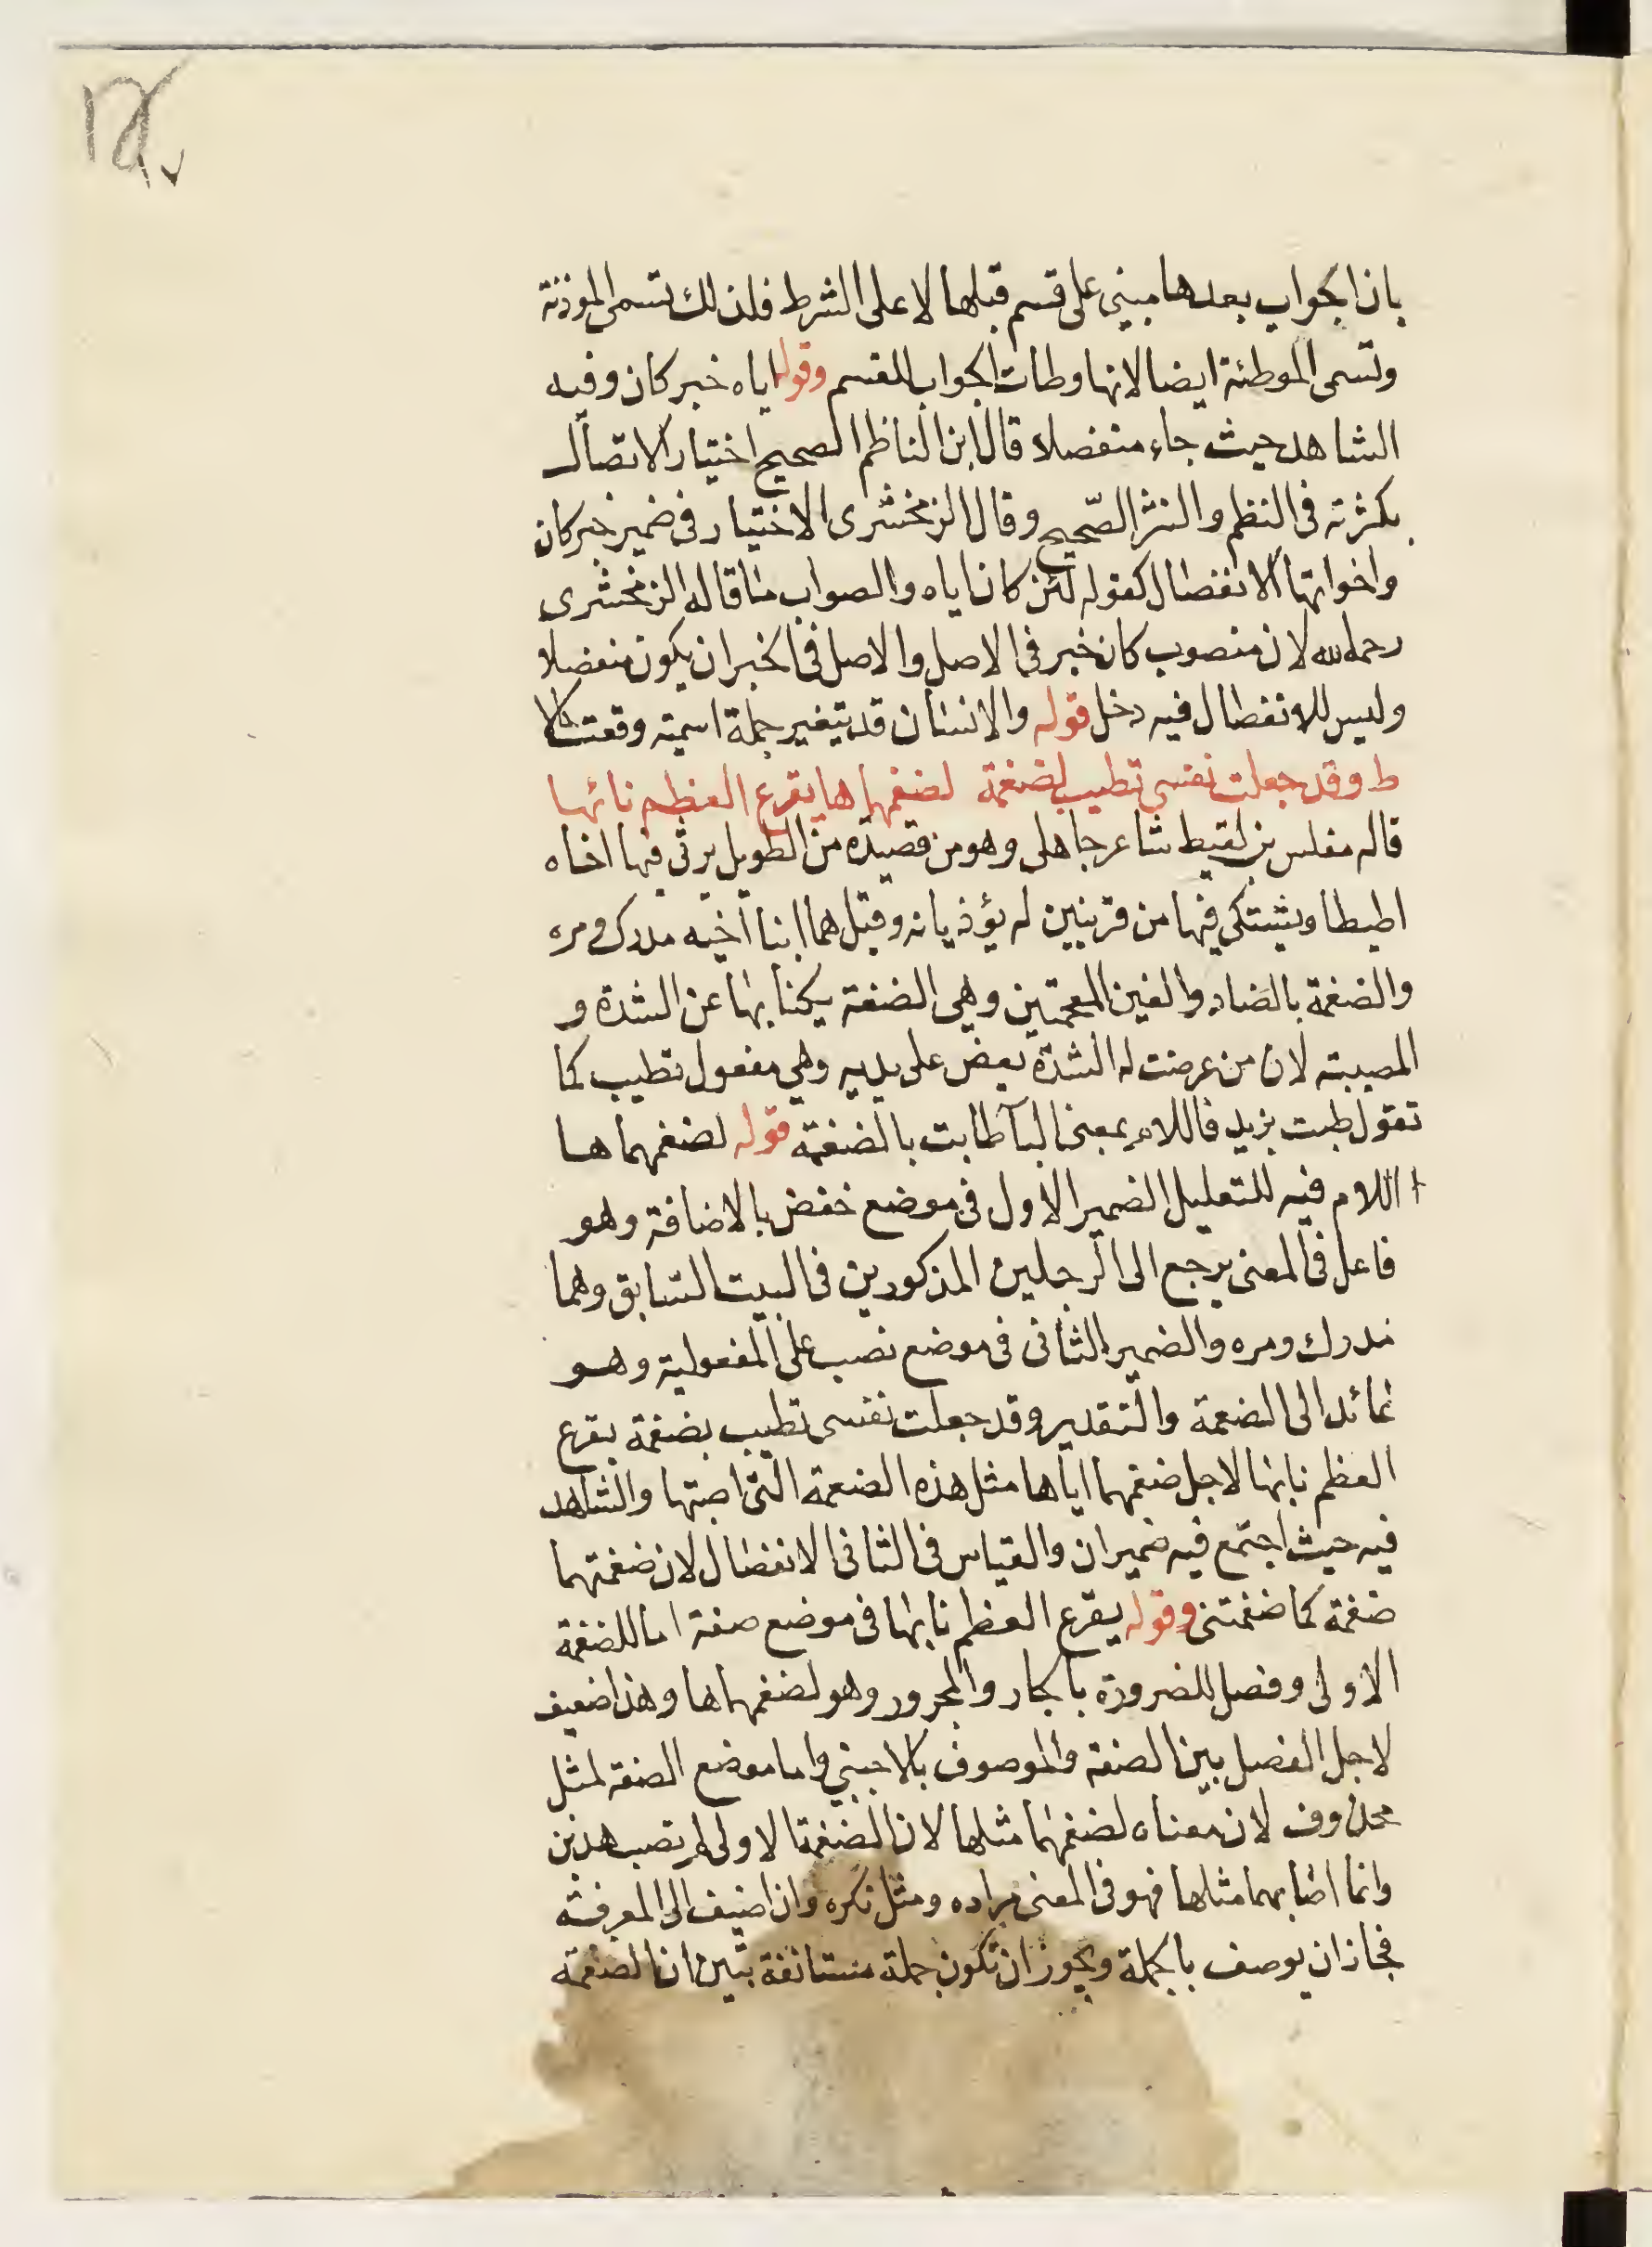 بان الجواب بعدها مبني على قسم قبلها لا على الشرط فلذلك تسمى الموذنة
وتسمى الموطئة ايضا لانها وطات الجواب للقسم وقوله اياه خبر كان وفيه
الشاهد حيث جاء منفصلا قال ابن الناظم الصحيح اختيار الاتصال
بكثرته فى النظم والنثر الصّحيح وقال الزمخشرى الاختيار فى ضمير خبر كان
واخواتها الانفصال كقوله لئن كان اياه والصواب ما قاله الزمخشرى
رحمه الله لان منصوب كان خبر فى الاصل والاصل فى الخبر ان يكون منفصلا
وليس للانفصال فيه دخل قوله والانسان قد يتغير جملة اسمية وقعت حالا
ط وقد جعلت نفسي تطيب لضغمة لضغمهما ها يقرع العظم نائها
قاله مغلس بن لقيط شاعر جاهلى وهو من قصيدة من الطويل يرثى فيها اخاه
اطيطا ويشتكي فيها من قرينين له يؤذيانه وقيل هما ابنا اخيه مدرك ومره
والضغمة بالضاد والغين المعجمتين وهي الضغة يكنا بها عن الشدة و
المصيبة لان من عرضت له الشدة يعض على يديه وهي مفعول تطيب كما
تقول طبت بزيد فاللام بمعنى البآ طابت بالضغمة قوله لضغمهما ها
اللام فيه للتعليل الضمير الاول فى موضع خفض بالاضافة وهو
فاعل فى المعنى يرجع الى الرجلين المذكورين فى البيت السّابق وهما
مدرك ومره والضمير الثانى فى موضع نصب على المفعولية وهو
عائد الى الضغمة والتقدير وقد جعلت نفسى تطيب بضغمة يقرع
العظم نابها لاجل ضغمهما اياها مثل هذه الضغمة التى اصبتها والشاهد
فيه حيث اجتمع فيه ضميران والقياس فى الثانى الانفصال لان ضغمتهما
ضغمة كما ضغمتنى وقوله يقرع العظم نابها فى موضع صفة اما للضغمة
الاولى وفصل للضرورة بالجار والمجرور وهو لضغمهما ها وهذا ضعيف
لاجل الفصل بين الصفة والموصوف بالاجنبي واما موضع الصفة لمثل
محذوف لان معناه لضغمهما مثلها لان الضغمة الاولى لم تصب هذين
وانما اصابهما مثلها فهو فى المعنى مراده ومثل نكره وان اضيف الى المعرفة
فجاز ان يوصف بالجملة ويجوز ان تكون جملة مستانفة تبين ان الضغمة